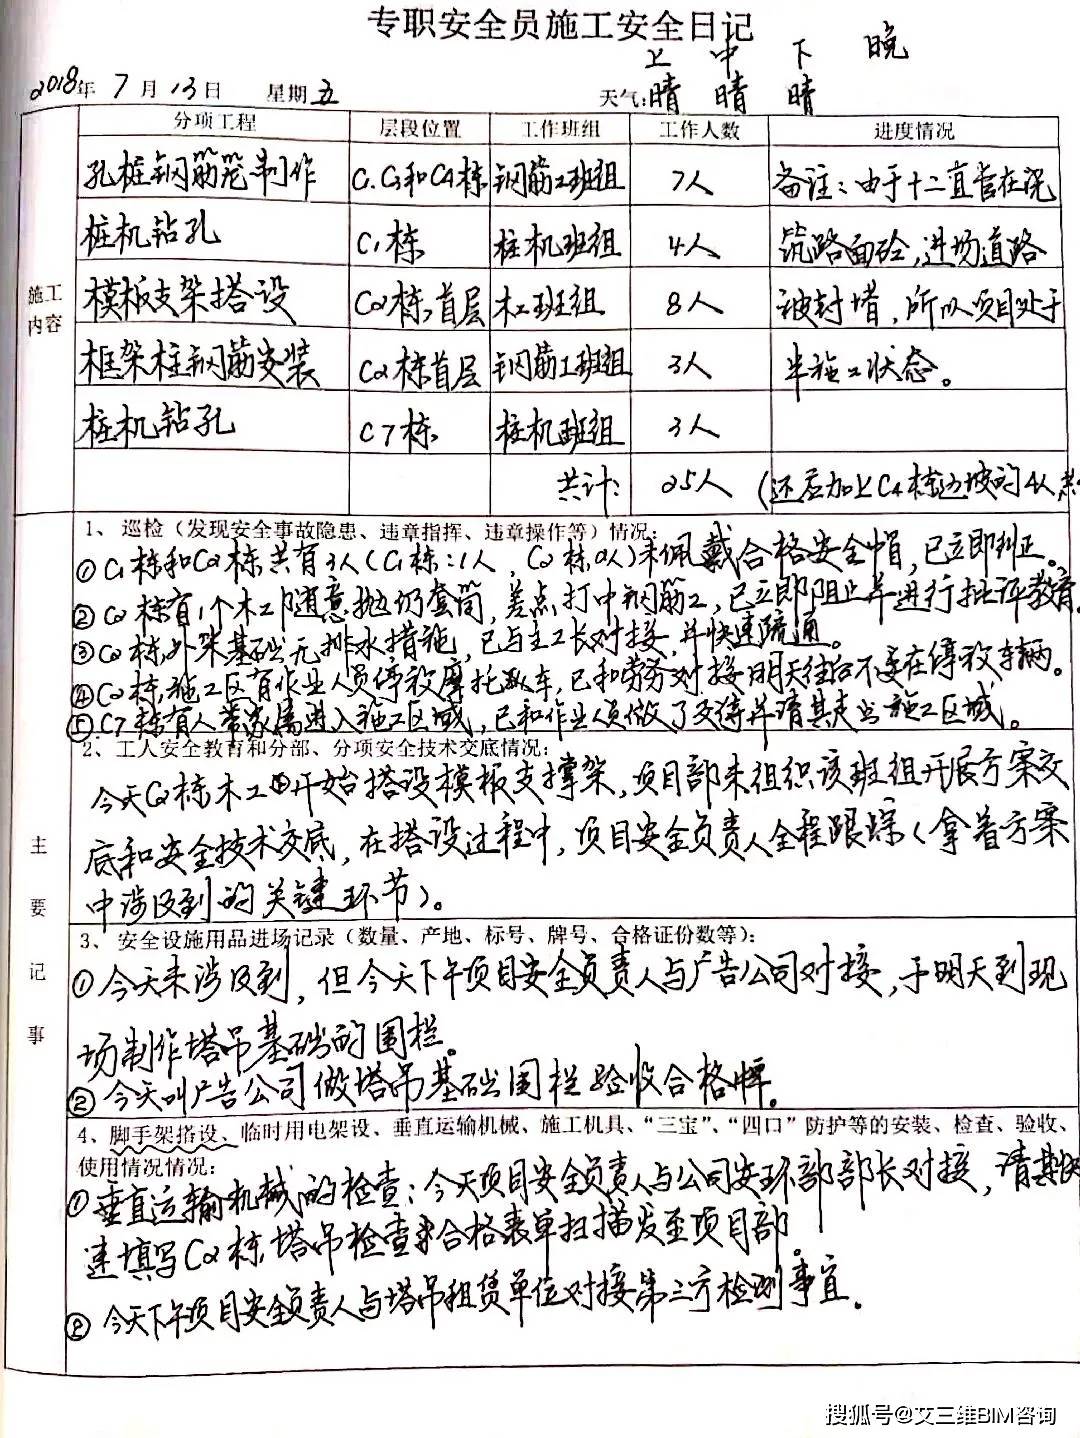 专职安全员施工安全日记
上 中 下 晚
2018年 7 月 13 日 星期 五 天气: 晴 晴 晴
分项工程 层段位置 工作班组 工作人数 进度情况
孔桩钢筋笼制作 C1.C3和C4栋 钢筋工班组 7人 备注：由于十二直管在浇
桩机钻孔 C1栋 桩机班组 4人 筑路面砼,进场道路
施工
内容
模板支架搭设 C2栋首层 木工班组 8人 被封堵，所以项目处于
框架柱钢筋安装 C2栋首层 钢筋工班组 3人 半施工状态。
桩机钻孔 C7栋 桩机班组 3人
共计: 25人 (还应加上C4栋边坡的4人
主要记事
1、巡检（发现安全事故隐患、违章指挥、违章操作等）情况:
①C1栋和C2栋共有3人(C1栋:1人，C2栋2人)未佩戴合格安全帽,已立即纠正。
②C2栋有1个木工随意抛扔套筒,差点打中钢筋工,已立即阻止并进行批评教育
③C2栋外架基础无排水措施,已与主工长对接,并快速疏通。
④C2栋施工区有作业人员停放摩托车,已和劳务对接明天往后不要在停放车辆。
⑤C7栋有人带家属进入施工区域,已和作业人员做了交待并请其走出施工区域。
2、工人安全教育和分部、分项安全技术交底情况:
今天C2栋木工开始搭设模板支撑架,项目部未组织该班组开展方案交
底和安全技术交底,在搭设过程中,项目安全负责人全程跟踪(拿着方案
中涉及到的关键环节)。
3、安全设施用品进场记录（数量、产地、标号、牌号、合格证份数等）:
①今天未涉及到,但今天下午项目安全负责人与广告公司对接,于明天到现
场制作塔吊基础的围栏。
②今天叫广告公司做塔吊基础围栏验收合格牌。
4、脚手架搭设、临时用电架设、垂直运输机械、施工机具、“三宝”、“四口”防护等的安装、检查、验收、
使用情况情况:
①垂直运输机械的检查:今天项目安全负责人与公司安环部部长对接,请其快
速填写C2栋塔吊检查合格表单扫描发至项目部。
②今天下午项目安全负责人与塔吊租赁单位对接第三方检测事宜.
搜狐号@艾三维BIM咨询